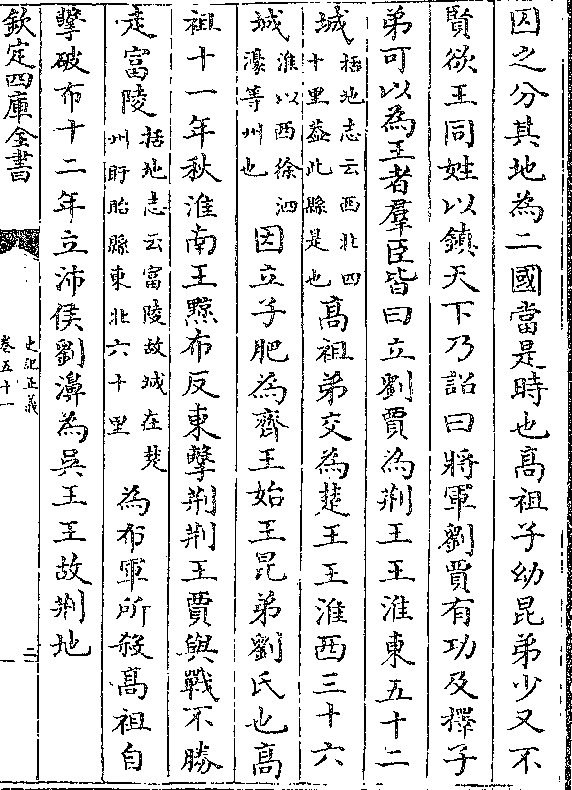 囚之分其地為二國當是時也髙祖子幼昆弟少又不
賢欲王同姓以鎮天下乃詔曰將軍劉賈有功及擇子
弟可以為王者羣臣皆曰立劉賈為荆王王淮東五十二
城括地志云西北四十里葢此縣是也髙祖弟交為楚王王淮西三十六
城淮以西徐泗濠等州也因立子肥為齊王始王昆弟劉氏也髙
祖十一年秋淮南王黥布反東擊荆荆王賈與戰不勝
走富陵括地志云富陵故城在楚州盱眙縣東北六十里為布軍所殺髙祖自
擊破布十二年立沛侯劉濞為吳王王故荆地
欽定四庫全書
史記正義
卷五十一
二